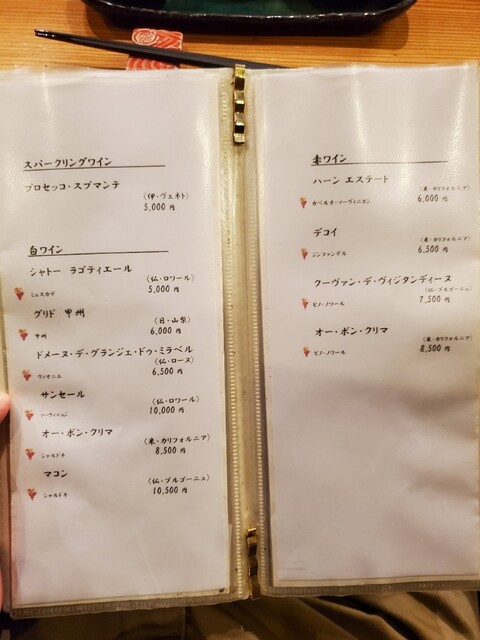 スパークリングワイン
プロセッコ・スプマンテ
(伊・ヴェネト)
5,000 円
白ワイン
シャトー ラゴティエール
(仏・ロワール)
ミュスカデ
5,000 円
グリド 甲州
(日・山梨)
甲州
6,000 円
ドメーヌ・デ・グランジェ・ドゥ・ミラベル
(仏・ローヌ)
ヴィオニエ
6,500 円
サンセール
(仏・ロワール)
ソーヴィニヨン
10,000 円
オー・ボン・クリマ
(米・カリフォルニア)
シャルドネ
8,500 円
マコン
(仏・ブルゴーニュ)
シャルドネ
10,500 円
赤ワイン
ハーン エステート
(米・カリフォルニア)
カベルネ・ソーヴィニヨン
6,000 円
デコイ
(米・カリフォルニア)
ジンファンデル
6,500 円
クーヴァン・デ・ヴィジタンディーヌ
(仏・ブルゴーニュ)
ピノ・ノワール
7,500 円
オー・ボン・クリマ
(米・カリフォルニア)
ピノ・ノワール
8,500 円